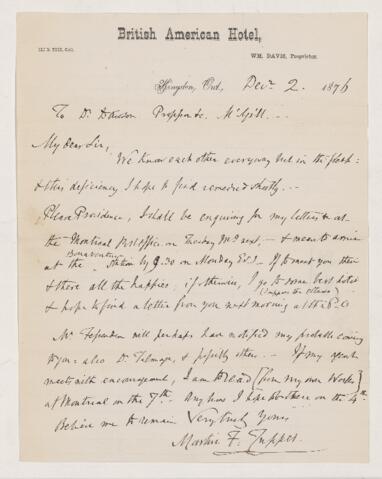 British American Hotel,
WM. DAVIS, Proprietor.
Kingston, Ont, Decr 2. 1876
To Dr Dawson Professor &c. McGill.
My dear Sir,
We know each other everyway but in the flesh:
& this deficiency I hope to find remedied shortly. –
Please Providence, I shall be enquiring for my letters at
the Montreal Post Office on Tuesday next, – & mean to arrive
at the Bonaventure Station by 9.30 on Monday – If to meet you then
& there all the happier; if otherwise, I go to some best hotel
(I suppose the Ottawa)
& hope to find a letter from you next morning at the P.O
Mr Fessenden will perhaps have notified my probable coming
to you: also Dr Talmage, & possibly others. – If my agent
meets with encouragement, I am to read [from my own Works]
at Montreal on the 7th. Any how I hope to be there on the 4th.
Believe me to remain Very truly Yours
Martin F. Tupper.